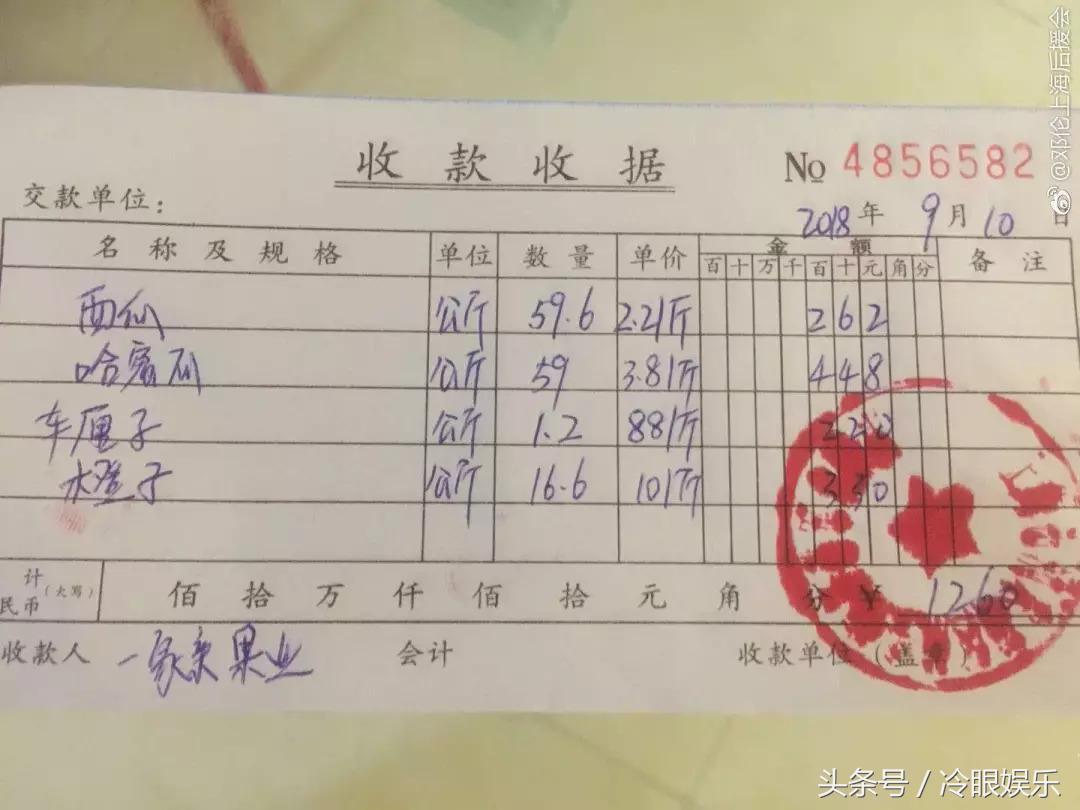 @邓伦上海后援会
收款收据 No 4856582
交款单位： 2018年 9月 10日
名称及规格 单位 数量 单价 金额 备注
百十万千百十元角分
西仙 公斤 59.6 2.2/斤 262
哈密瓜 公斤 59 3.8/斤 448
车厘子 公斤 1.2 88/斤 220
水橙子 公斤 16.6 10/斤 330
计
民币（大写） 佰拾万仟佰拾元角分 ¥ 1260
收款人 一家亲果业 会计 收款单位（盖章）
头条号 / 冷眼娱乐